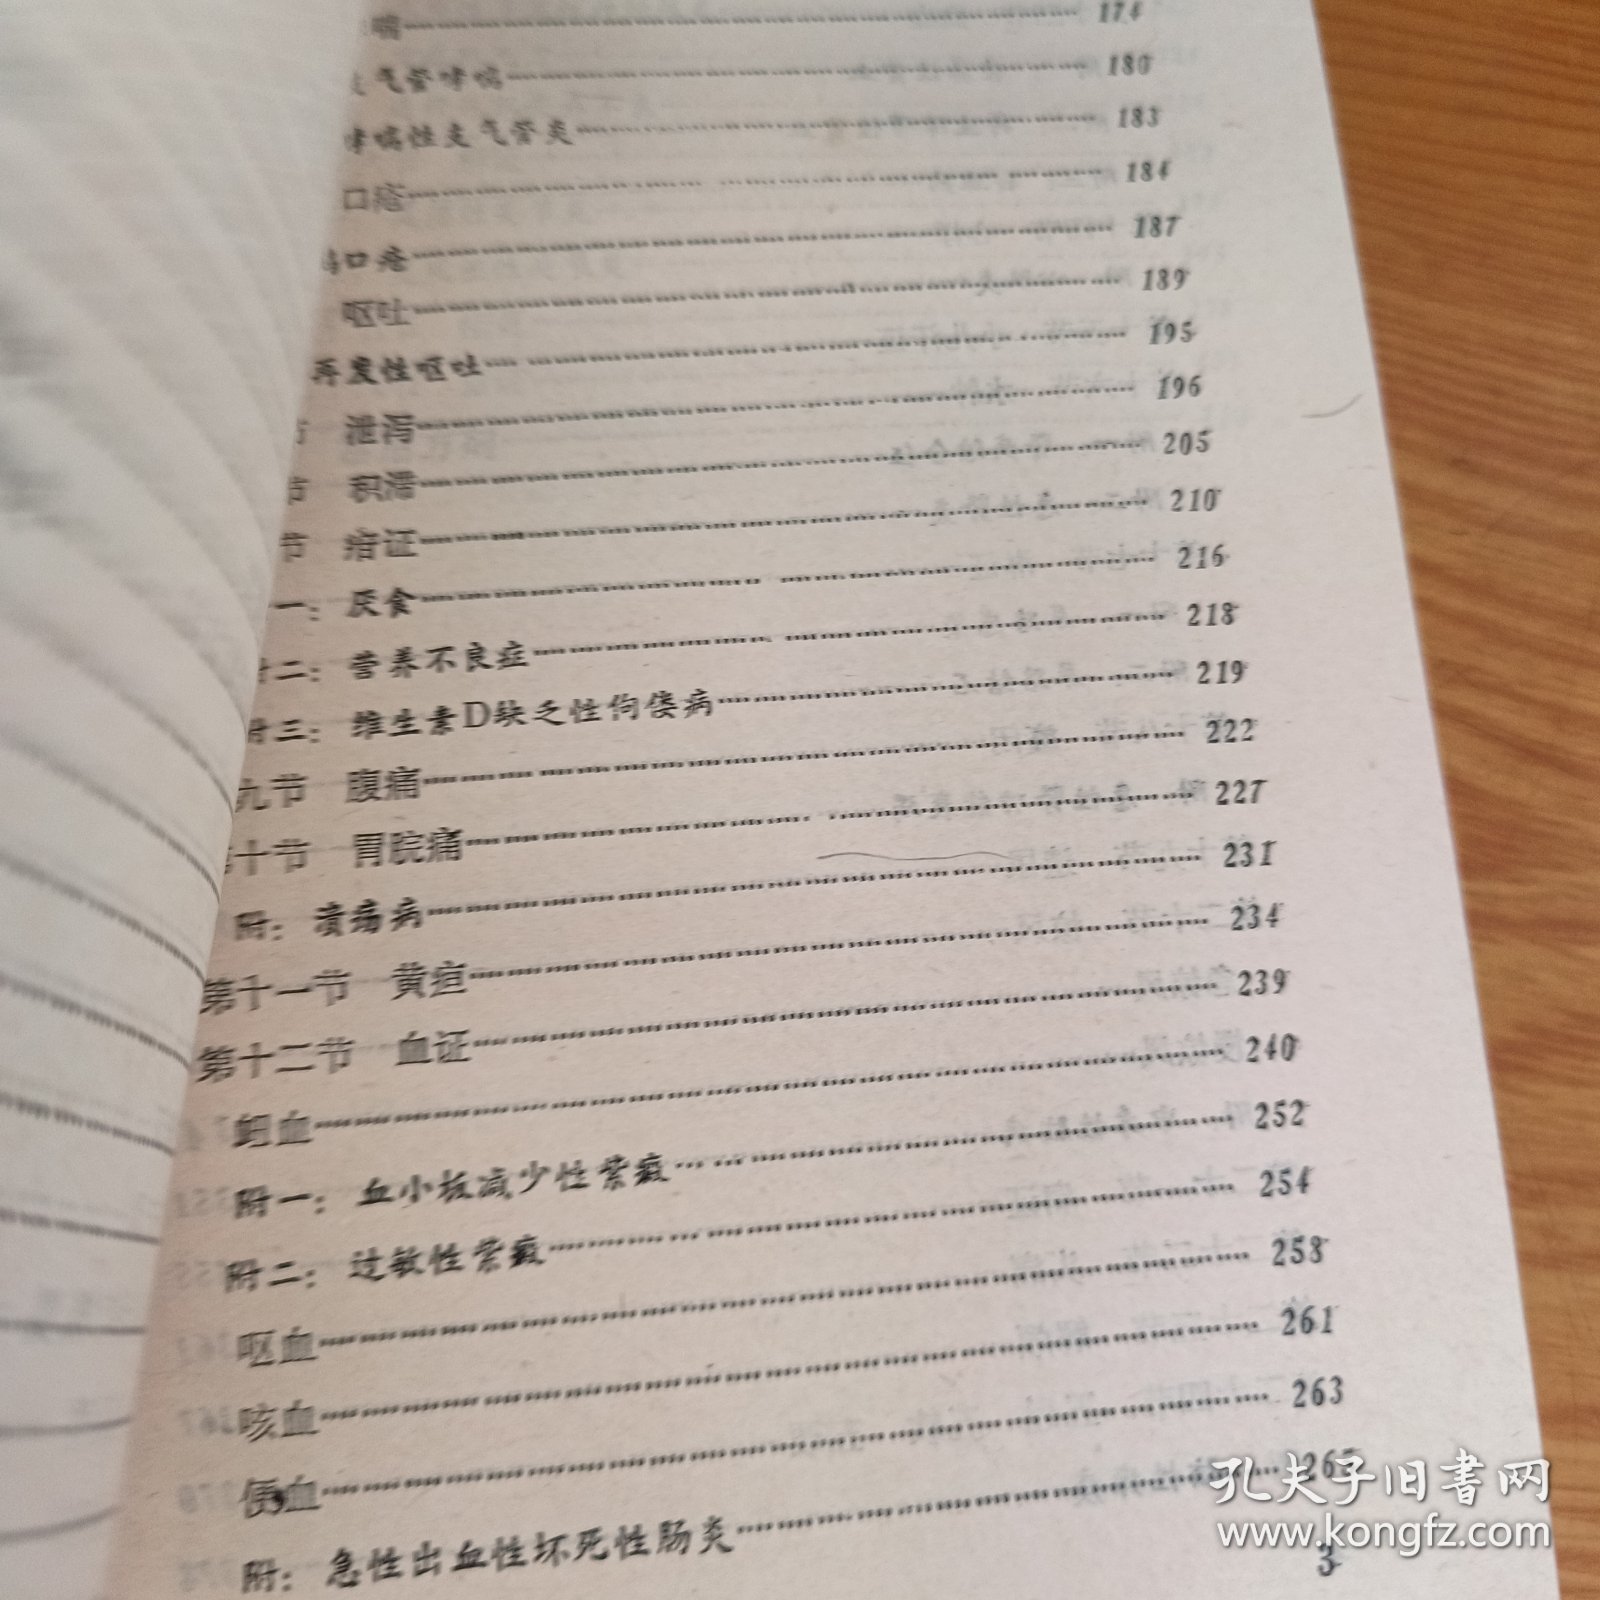 喘……174
气管哮喘……180
哮喘性支气管炎……183
口疮……184
口疮……187
呕吐……189
再发性呕吐……195
泄泻……196
节 积滞……205
节 疳证……210
一：厌食……216
附二：营养不良症……218
附三：维生素D缺乏性佝偻病……219
九节 腹痛……222
十节 胃脘痛……227
附：溃疡病……231
第十一节 黄疸……234
第十二节 血证……239
衄血……240
附一：血小板减少性紫癜……252
附二：过敏性紫癜……254
呕血……258
咳血……261
便血……263
附：急性出血性坏死性肠炎……
3
孔夫子旧书网
www.kongfz.com